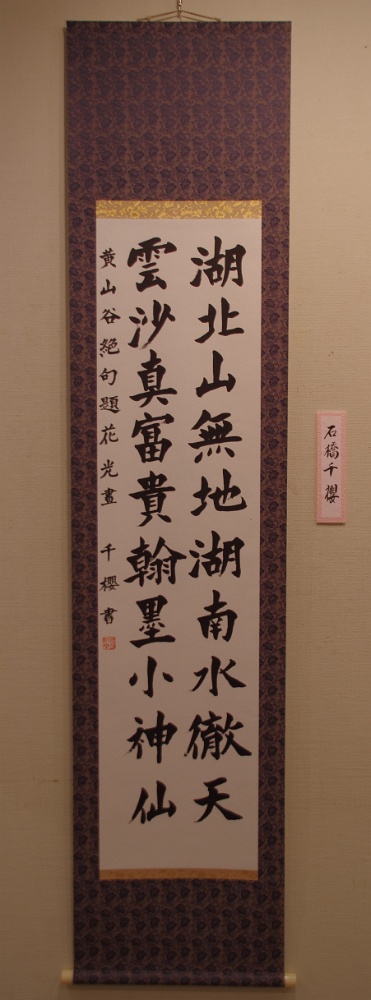 湖北山無地湖南水徹天
雲沙真富貴翰墨小神仙
黄山谷絶句題花光畫 千櫻書
石橋千櫻